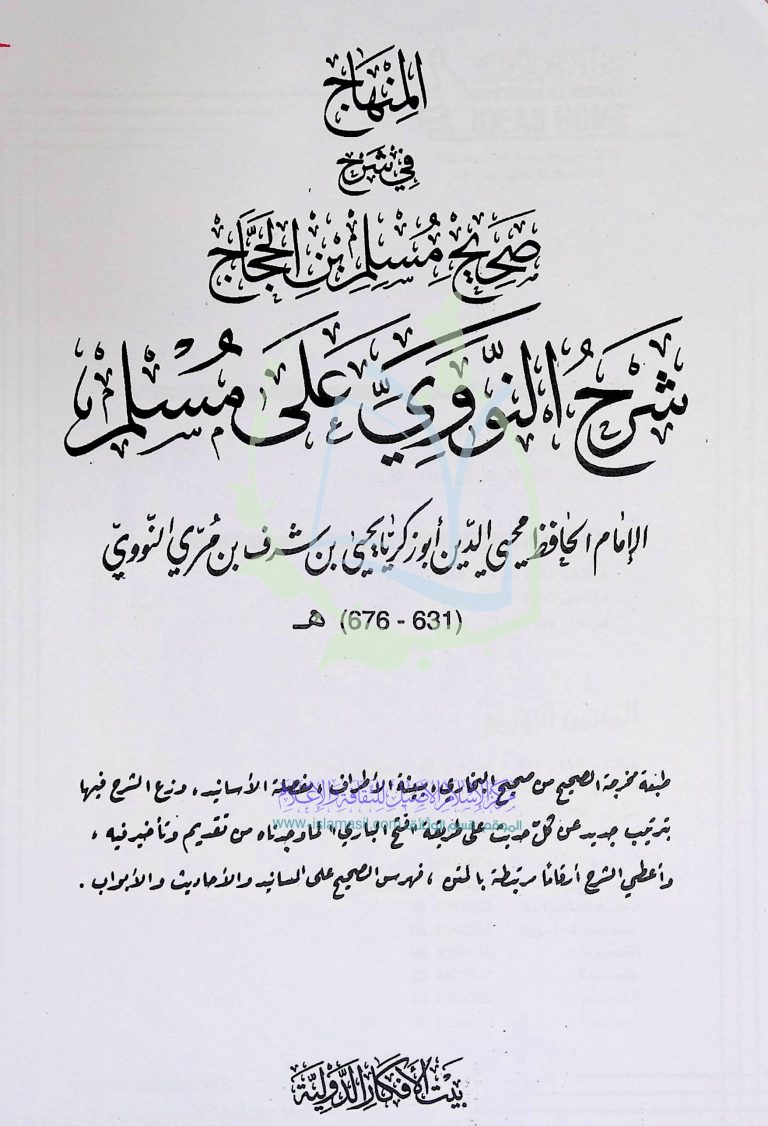 المِنْهَاج
فِي شَرْح
صَحِيح مُسْلِم بْنِ الحَجَّاج
شَرْحُ النَّوَوِيِّ عَلَى مُسْلِم
الإمَام الحَافِظ محيي الدّين أبو زكريّا يحيى بن شرف بن مُرّي النّوويّ
(631 - 676) هـ
طبعة مخرجة الصحيح من صحيح البخاري، مبينة الأطراف، مفصلة الأسانيد، وزع الشرح فيها
مركز الإسلام الأصيل للثقافة والإعلام
بترتيب جديد عن كلّ حديث على طريقة "فتح الباري" لما وجدناه من تقديم وتأخير فيه،
www.islamasil.com
وأعطي الشرح أرقامًا مرتبطة بالمتن، فهرس الصحيح على المسانيد والأحاديث والأبواب.
بَيْت الأفْكَار الدَّوْلِيَّة